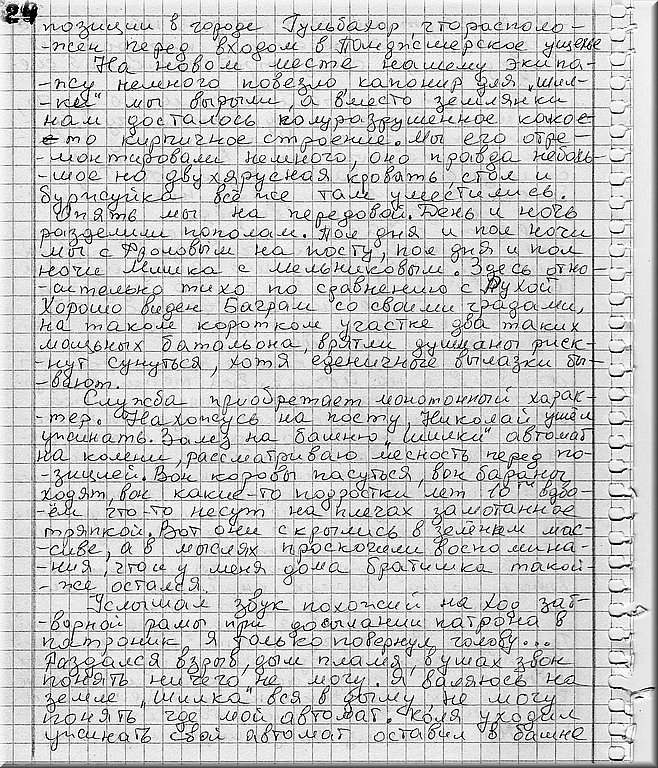 24
позиции в городе Гульбахор, что располо-
-жен перед входом в Панджшерское ущелье
На новом месте нашему экипа-
-жу немного повезло капонир для „шил-
-ки" мы вырыли, а вместо землянки
нам досталось полуразрушенное какое
-то кирпичное строение. Мы его отре-
-монтировали немного, оно правда неболь-
-шое но двухярусная кровать стол и
буржуйка всё же там уместились.
Опять мы на передовой. День и ночь
разделили пополам. Пол дня и пол ночи
мы с Фроловым на посту, пол дня и пол
ночи Мишка с Мельниковым. Здесь отно-
-сительно тихо по сравнению с Рухой
Хорошо виден Баграм со своими градами,
на таком коротком участке два таких
мощных батальона, врятли душманы риск-
-нут сунуться, хотя еденичные вылазки бы-
-вают.
Служба приобретает монотонный харак-
-тер. Нахожусь на посту, Николай ушёл
ужинать. Залез на башню „шилки" автомат
на колени, рассматриваю месность перед по-
-зицией. Вон коровы пасуться, вон бараны
ходят, вон какие-то подростки лет 10ти вдво-
-ём что-то несут на плечах замотанное
тряпкой. Вот они скрылись в зелёном мас-
-сиве, а в мыслях проскочили воспомина-
-ния, что и у меня дома братишка такой-
-же остался.
Услышал звук похожий на ход зат-
-ворной рамы при досылании патрона в
патроник я только повернул голову...
Раздался взрыв, дым пламя, в ушах звон
понять ничего не могу. Я валяюсь на
земле, „шилка" вся в дыму, не могу
понять где мой автомат. Коля уходил
ужинать свой автомат оставил в башне